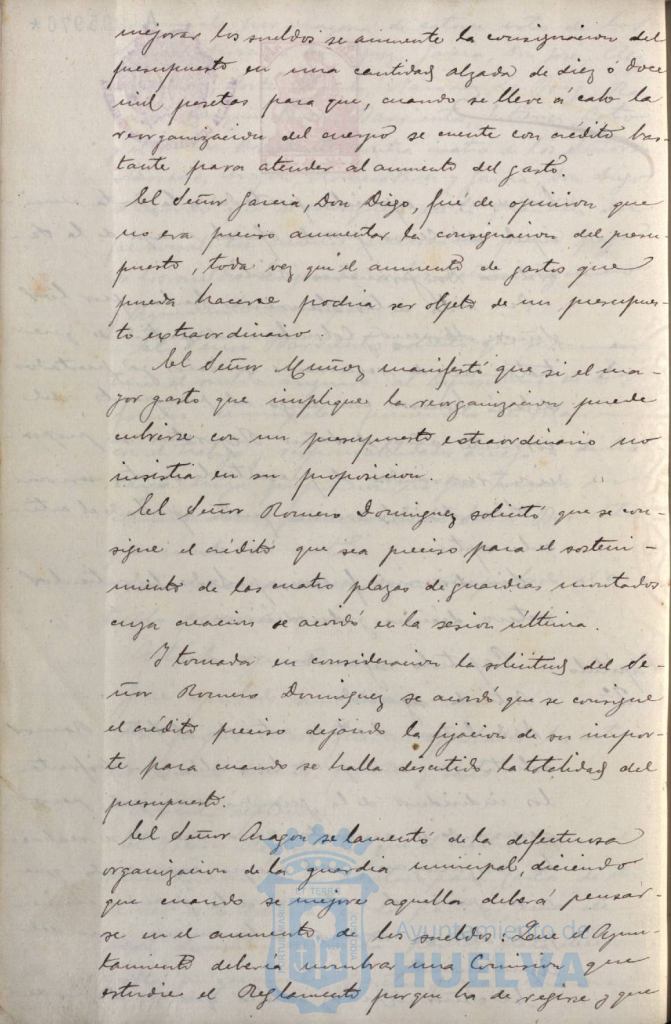 mejorar los sueldos se aumente la consignacion del
presupuesto en una cantidad alzada de diez ó doce
mil pesetas para que, cuando se lleve á cabo la
reorganizacion del cuerpo se cuente con crédito bas-
tante para atender al aumento del gasto.
El Señor Garcia, Don Diego, fué de opinion que
no era preciso aumentar la consignacion del presu-
puesto, toda vez que el aumento de gastos que
pueda hacerse podria ser objeto de un presupues-
to extraordinario
El Señor Muñoz manifestó que si el ma-
yor gasto que implique la reorganizacion puede
cubrirse con un presupuesto extraordinario no
insistia en su proposicion.
El Señor Romero Dominguez solicitó que se con-
signe el crédito que sea preciso para el sosteni-
miento de las cuatro plazas de guardias montados
cuya creacion se acordó en la sesion última.
Y tomada en consideracion la solicitud del Se-
ñor Romero Dominguez se acordó que se consigne
el crédito preciso dejando la fijacion de su impor-
te para cuando se halla discutido la totalidad del
presupuesto.
El Señor Aragon se lamentó de la defectuosa
organizacion de la guardia municipal, diciendo
que cuando se mejore aquella deberá pensar-
se en el aumento de los sueldos: Que el Ayun-
tamiento deberia nombrar una Comision que
estudie el Reglamento porque ha de regirse y que
Ayuntamiento de
HUELVA